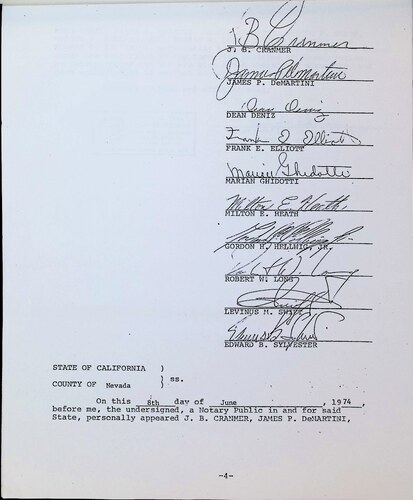 J. B. Cranmer
J. B. CRANMER
James P. DeMartini
JAMES P. DeMARTINI
Dean Deniz
DEAN DENIZ
Frank E Elliott
FRANK E. ELLIOTT
Marian Ghidotti
MARIAN GHIDOTTI
Milton E. Heath
MILTON E. HEATH
GORDON H. HELLWIG, JR.
ROBERT W. LONG
LEVINUS M. SWIFT
EDWARD B. SYLVESTER
STATE OF CALIFORNIA )
) ss.
COUNTY OF Nevada )
On this 8th day of June , 1974 ,
before me, the undersigned, a Notary Public in and for said
State, personally appeared J. B. CRANMER, JAMES P. DeMARTINI,
-4-